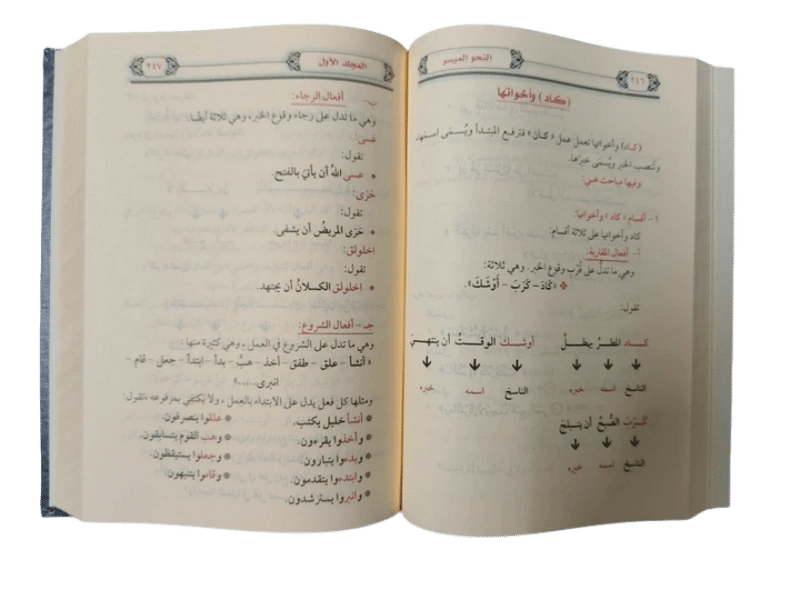 ٢٤٦
النحو الميسر
(كاد) وأخواتها
(كاد) وأخواتها تعمل عمل «كان» فترفع المبتدأ ويُسمَى اسمها،
وتنصب الخبر ويُسمَى خبرَها.
وفيها مباحث هي:
١- أقسام «كاد» وأخواتها:
كاد وأخواتها على ثلاثة أقسام:
أ- أفعال المقاربة:
وهي ما تدلُّ على قُرْبِ وقوع الخبر. وهي ثلاثة:
❖ «كَادَ - كَرَبَ - أَوْشَكَ».
تقول:
كــاد المطــرُ يهطــلُ أوشــك الوقــتُ أن ينتهـيَ
الناسخ اسمه خبره الناسخ اسمه خبره
كَــرَبَ الصُّبحُ أن ينبلـجَ
الناسخ اسمه خبره
المجلد الأول
٢٤٧
ب- أفعال الرجاء:
وهي ما تدل على رجاء وقوع الخبر، وهي ثلاثة أيضًا.
عَسى:
تقول:
• عسى اللهُ أن يأتيَ بالفتح.
حَرَى:
تقول:
• حَرَى المريضُ أن يشفى.
اخلولق:
تقول:
• اخلولق الكسلانُ أن يجتهد.
جـ - أفعال الشروع:
وهي ما تدل على الشروع في العمل، وهي كثيرة منها:
«أنشأ - علق - طفق - أخذ - هبَّ - بدأ - ابتدأ - جعل - قام -
انبرى.....»
ومثلها كل فعل يدل على الابتداء بالعمل، ولا يكتفي بمرفوعه تقول:
* أنشأ خليل يكتب. * علقوا ينصرفون.
* وأخذوا يقرءون. * وهب القوم يتسابقون.
* وبدءوا يتبارون. * وجعلوا يستيقظون.
* وابتدءوا يتقدمون. * وقاموا يتنبهون.
* وانبروا يسترشدون.